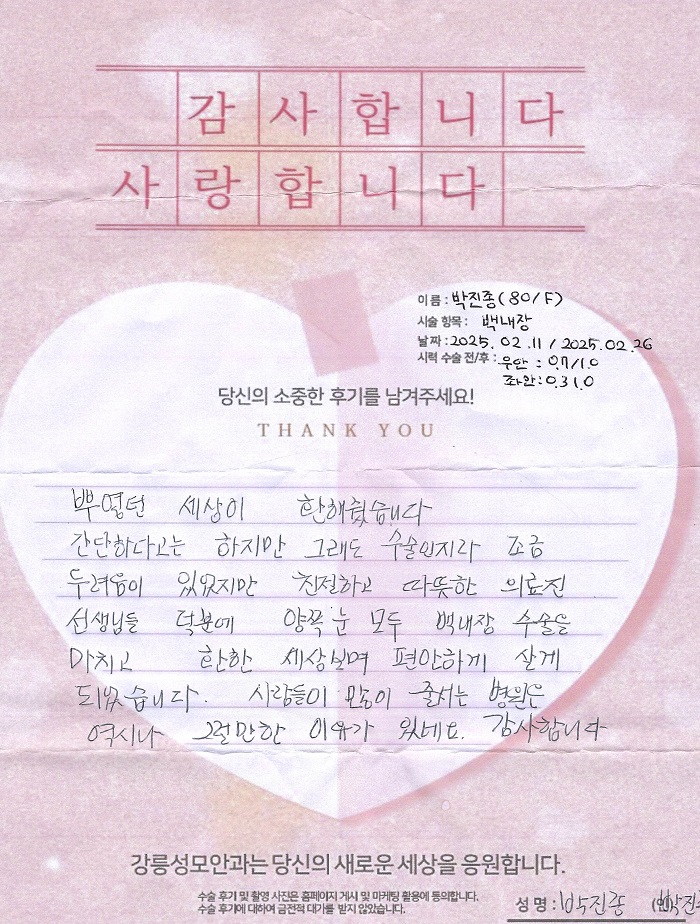 감사합니다
사랑합니다
이름 : 박진종(80/F)
시술 항목 : 백내장
날짜 : 2025. 02. 11 / 2025. 02. 26
시력 수술 전/후 : 우안 : 0.7/1.0
좌안 : 0.3 1.0
당신의 소중한 후기를 남겨주세요!
THANK YOU
뿌옇던 세상이 환해졌습니다
간단하다고는 하지만 그래도 수술인지라 조금
두려움이 있었지만 친절하고 따뜻한 의료진
선생님들 덕분에 양쪽 눈 모두 백내장 수술을
마치고 환한 세상보며 편안하게 살게
되었습니다. 사람들이 많이 줄서는 병원은
역시나 그럴만한 이유가 있네요. 감사합니다
강릉성모안과는 당신의 새로운 세상을 응원합니다.
수술 후기 및 촬영 사진은 홈페이지 게시 및 마케팅 활용에 동의합니다.
수술 후기에 대하여 금전적 대가를 받지 않았습니다.
성명 : 박진종 (인) 박진